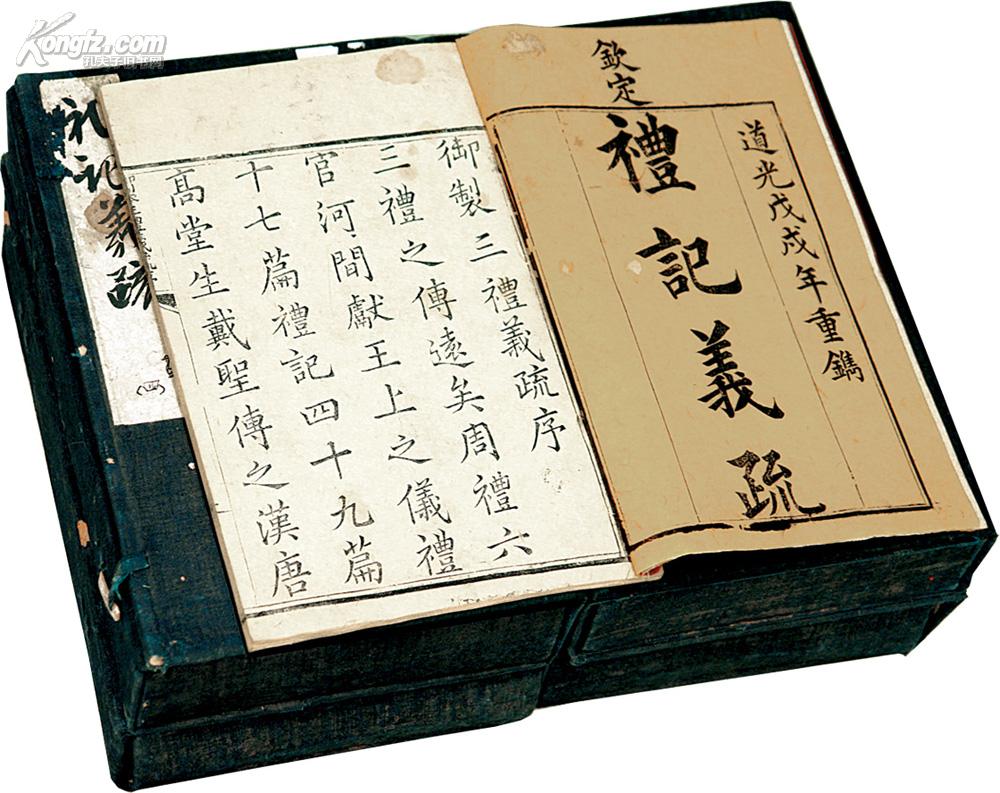 Kongfz.com
孔夫子旧书网
欽定
禮記義疏
道光戊戌年重鐫
御製三禮義疏序
三禮之傳遠矣周禮六
官河間獻王上之儀禮
十七篇禮記四十九篇
高堂生戴聖傳之漢唐
礼记義疏
(四)